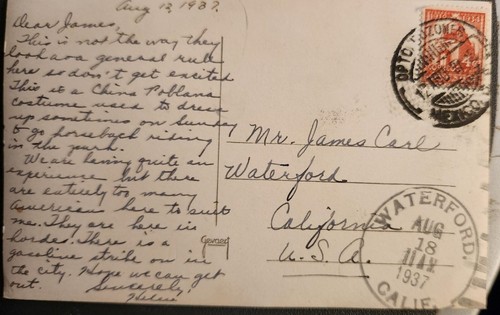 Aug 12, 1937.
Dear James,
This is not the way they
look as a general rule
here so don't get excited
This is a China Poblana
costume used to dress
up sometimes on Sunday
to go horseback riding
in the park.
We are having quite an
experience but there
are entirely too many
Americans here to suit
me. They are here in
hordes. There is a
gasoline strike on in
the city. Hope we can get
out. Sincerely,
Gevaert
Mr. James Carl
Waterford
California
U.S.A.
MEXICO
WATERFORD.
AUG
18
11 AM
1937
CALIF.